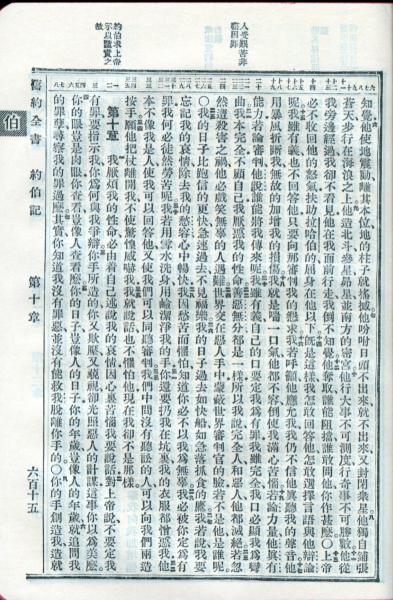 人受艱苦非
約伯求上帝
示以譴責之
故
知覺他使地震動離其本位地的柱子就搖撼他吩咐日頭不出來就不出來又封閉衆星他獨自鋪張
蒼天步行在海浪之上他造北斗參星昴星並南方的密宮他行大事不可測度行奇事不可勝數他從
我旁邊經過我卻不看見他在我面前行走我倒不知覺他奪取誰能阻擋誰敢問他你作甚麼〇上帝
必不收回他的怒氣扶助拉哈伯的屈身在他以下既是這樣我怎敢回答他怎敢選擇言語與他辯論
呢我雖有義也不回答他只要向那審判我的懇求我若呼籲他應允我我仍不信他眞聽我的聲音他
用暴風折斷我無故的加增我的損傷我就是喘一口氣他都不容倒使我滿心苦惱若論力量他眞有
能力若論審判他說誰能將我傳來呢我雖有義自己的口要定我爲有罪我雖完全我口必顯我爲彎
曲我本完全不顧自己我厭惡我的性命善惡無分都是一樣所以我說完全人和惡人他都滅絕若忽
然遭殺害之禍他必戲笑無辜的人遇難世界交在惡人手中蒙蔽世界審判官的臉若不是他是誰呢
〇我的日子比跑信的更快急速過去不見福樂我的日子過去如快船如急落抓食的鷹我若說我要
忘記我的哀情除去我的愁容心中暢快我因愁苦而懼怕知道你必不以我爲無辜我必被你定爲有
罪我何必徒然勞苦呢我若用雪水洗身用鹼潔淨我的手你還要扔我在坑裏我的衣服都憎惡我他
本不像我是人使我可以回答他又使我們可以同聽審判我們中間沒有聽訟的人可以向我們兩造
按手願他把杖離開我不使驚惶威嚇我我就說話也不懼怕他現在我卻不是那樣
第十章 我厭煩我的性命必由着自己述說我的哀情因心裏苦惱我要說話對上帝說不要定我
有罪要指示我你爲何與我爭辯你手所造的你又欺壓又藐視卻光照惡人的計謀這事你以爲美麼
你的眼豈是肉眼你查看豈像人查看麼你的日子豈像人的日子你的年歲豈像人的年歲就追問我
的罪孽尋察我的罪過麼其實你知道我沒有罪惡並沒有能救我脫離你手的〇你的手創造我造就
舊約全書 約伯記 第十章 六百十五
伯